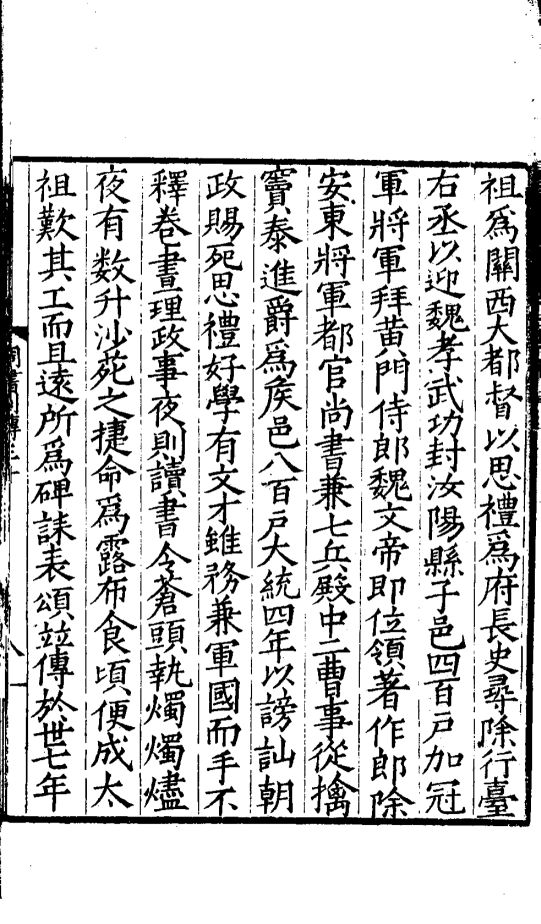 祖爲關西大都督以思禮爲府長史尋除行臺
右丞以迎魏孝武功封汝陽縣子邑四百戸加冠
軍將軍拜黄門侍郎魏文帝即位領著作郎除
安東將軍都官尚書兼七兵殿中二曹事從擒
竇泰進爵爲侯邑八百戸大統四年以謗訕朝
政賜死思禮好學有文才雖務兼軍國而手不
釋卷晝理政事夜則讀書令蒼頭執燭燭燼
夜有数升沙苑之捷命爲露布食頃便成太
祖歎其工而且速所爲碑誄表頌並傳於世七年